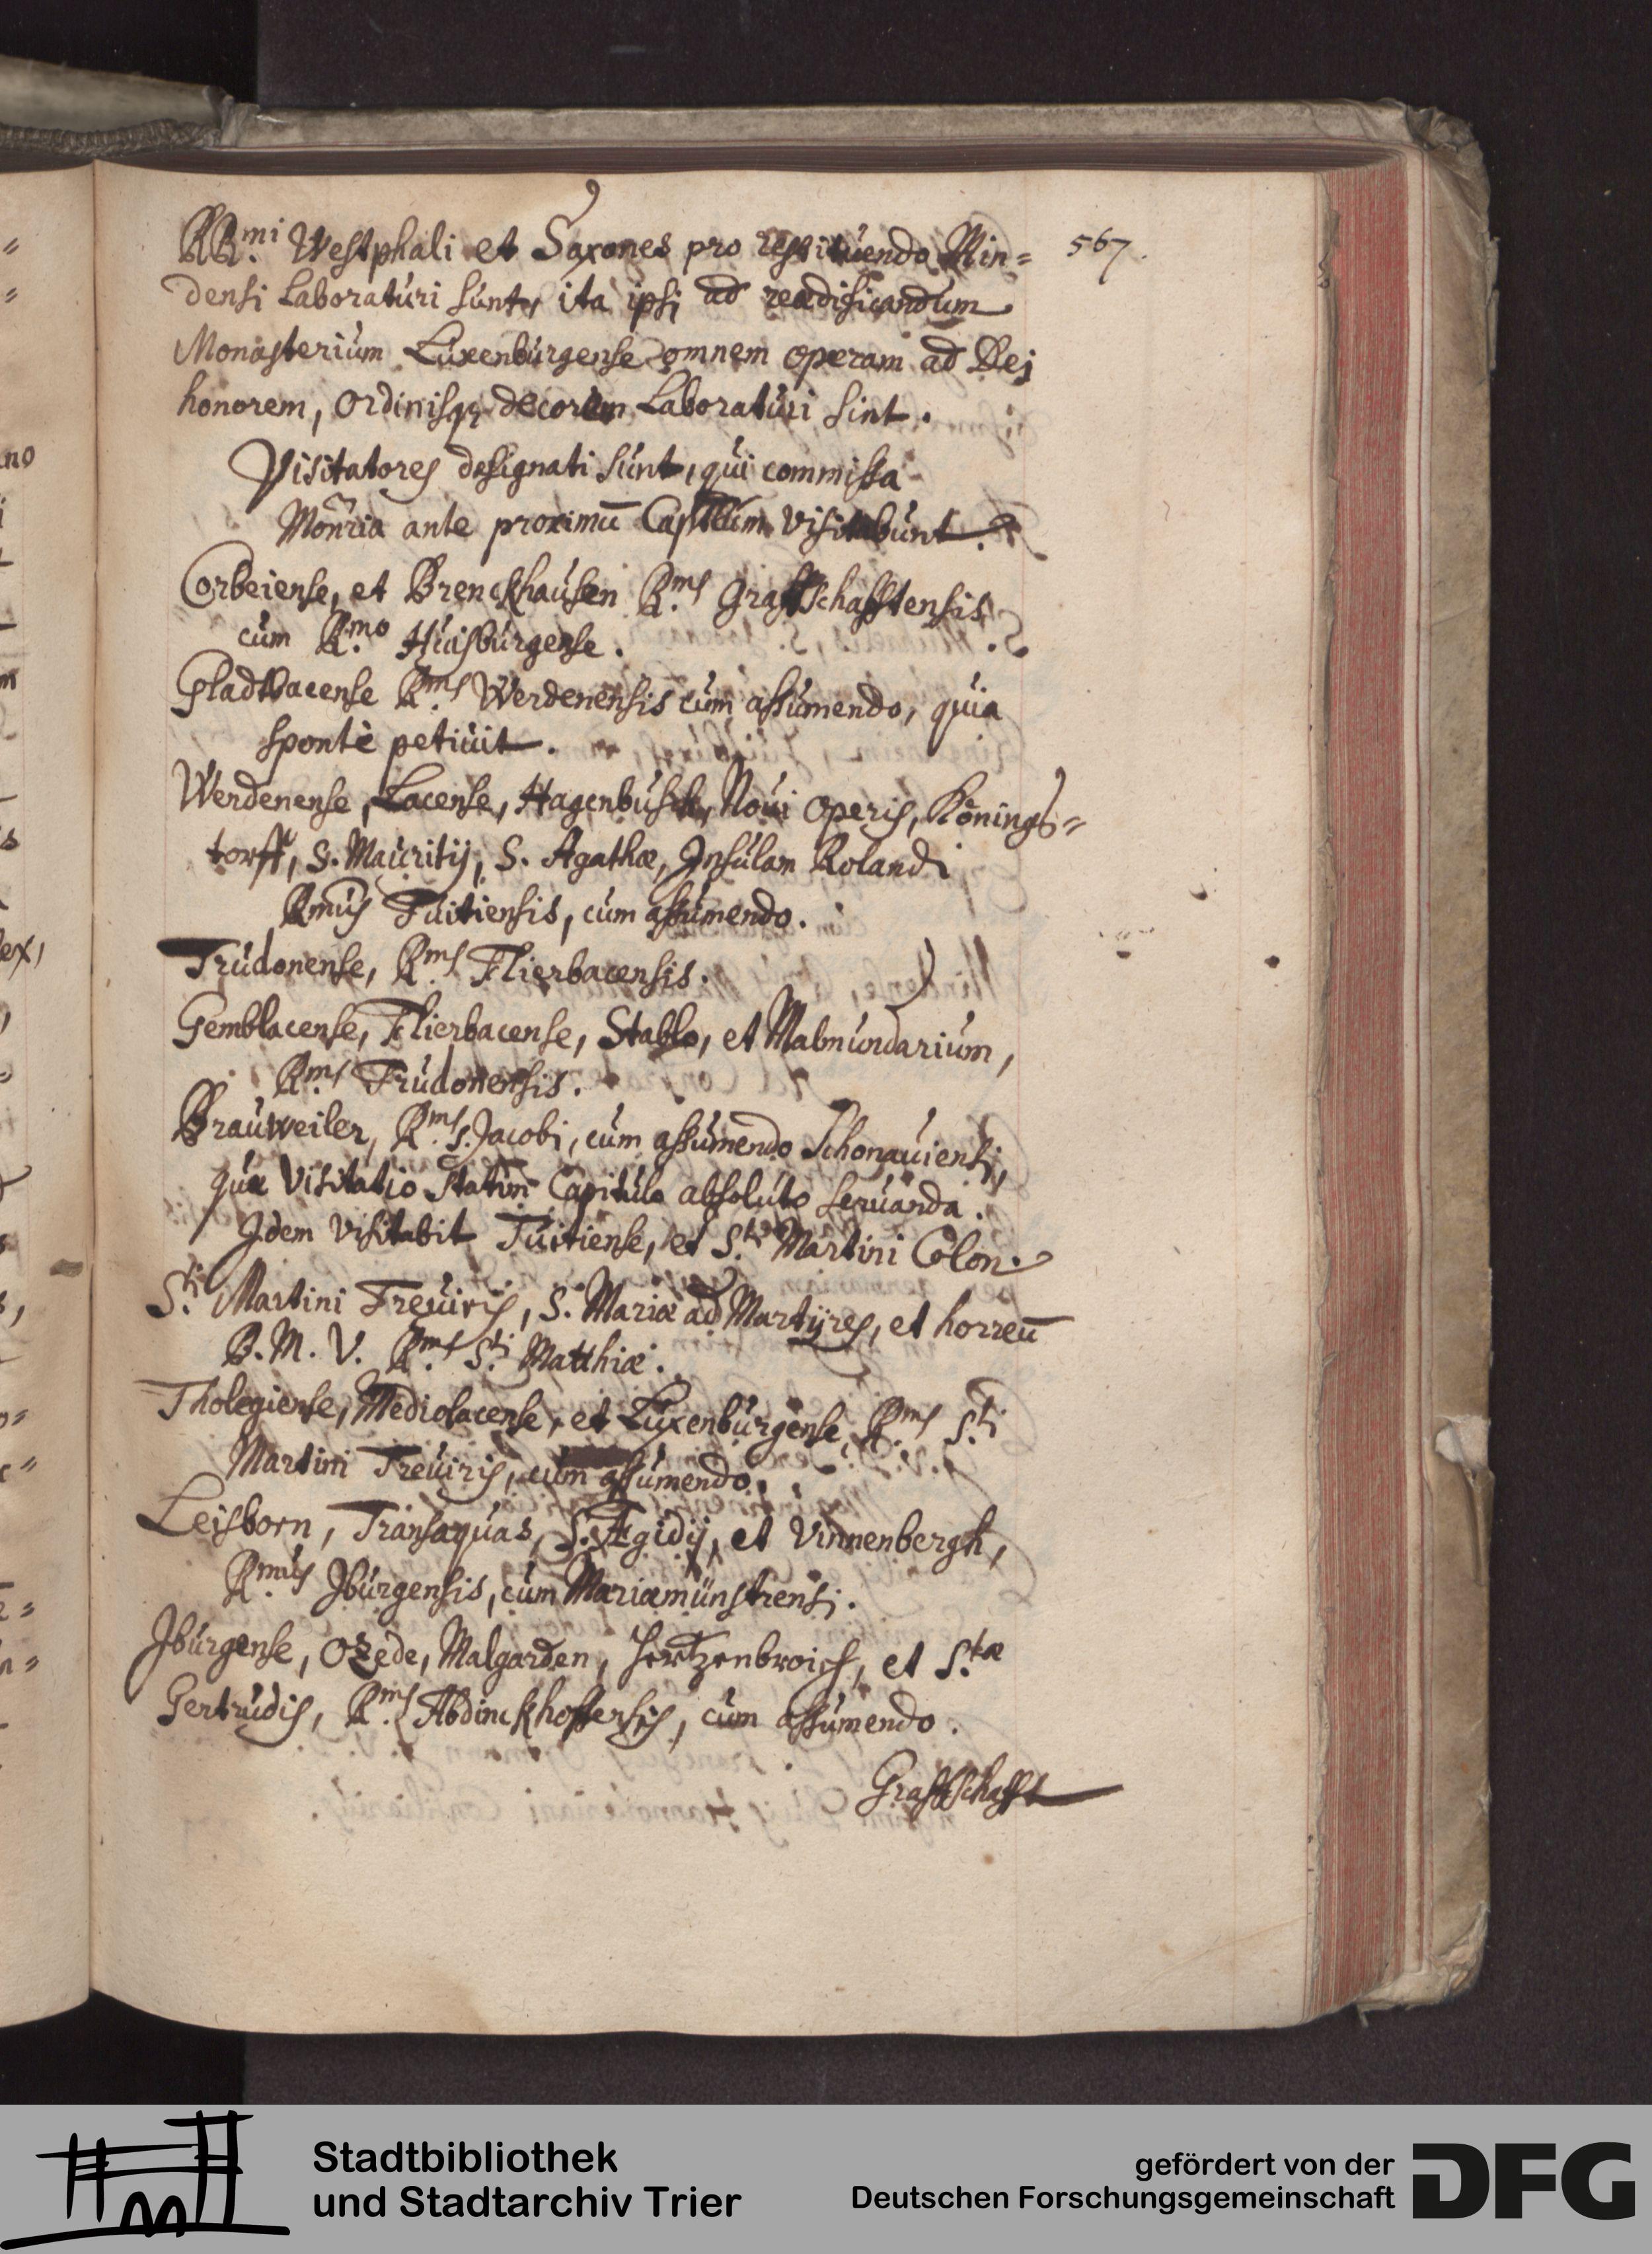 567.
RR.mi Westphali et Saxones pro restituendo Min=
densi Laboraturi sunt, ita ipsi ad reædificandum
Monasterium Luxenburgense omnem operam ad Dei
honorem, Ordinisq; decorem Laboraturi sint.
Visitatores designati sunt, qui commissa
Monria ante proximū Capitlum visitabunt.
Corbeiense, et Brenckhausen R.ms Graffschafftensis
cum R.mo Huisburgense.
Gladtbacense R.ms Werdenensis cum assumendo, quia
spontè petiuit.
Werdenense, Lacense, Hagenbusch, Noui Operis, Königs=
torff, S. Mauritij, S. Agathæ, Insulam Rolandi
Rmus Tuitiensis, cum assumendo.
Trudonense, R.ms Flierbacensis.
Gemblacense, Flierbacense, Stablo, et Malmundarium,
R.ms Trudonensis.
Brauweiler, R.ms S. Jacobi, cum assumendo Schonauiensi,
quæ Visitatio statim Capitulo absoluto seruanda.
Idem visitabit Tuitiense, et S.ti Martini Colon.
S.ti Martini Treuiris, S. Mariæ ad Martyres, et horreū
B. M. V. R.ms S.ti Matthiæ.
Tholegiense, Mediolacense, et Luxenburgense, R.ms S.ti
Martini Treuiris, cum assumendo.
Leisborn, Transaquas, S. Ægidij, et Vinnenbergh,
R.mus Iburgensis, cum Mariæmünstrensi.
Iburgense, Ozede, Malgarden, Hertzenbroich, et S.tæ
Gertrudis, R.ms Abdinckhoffensis, cum assumendo.
Graffschafft
Stadtbibliothek
und Stadtarchiv Trier
gefördert von der
Deutschen Forschungsgemeinschaft
DFG